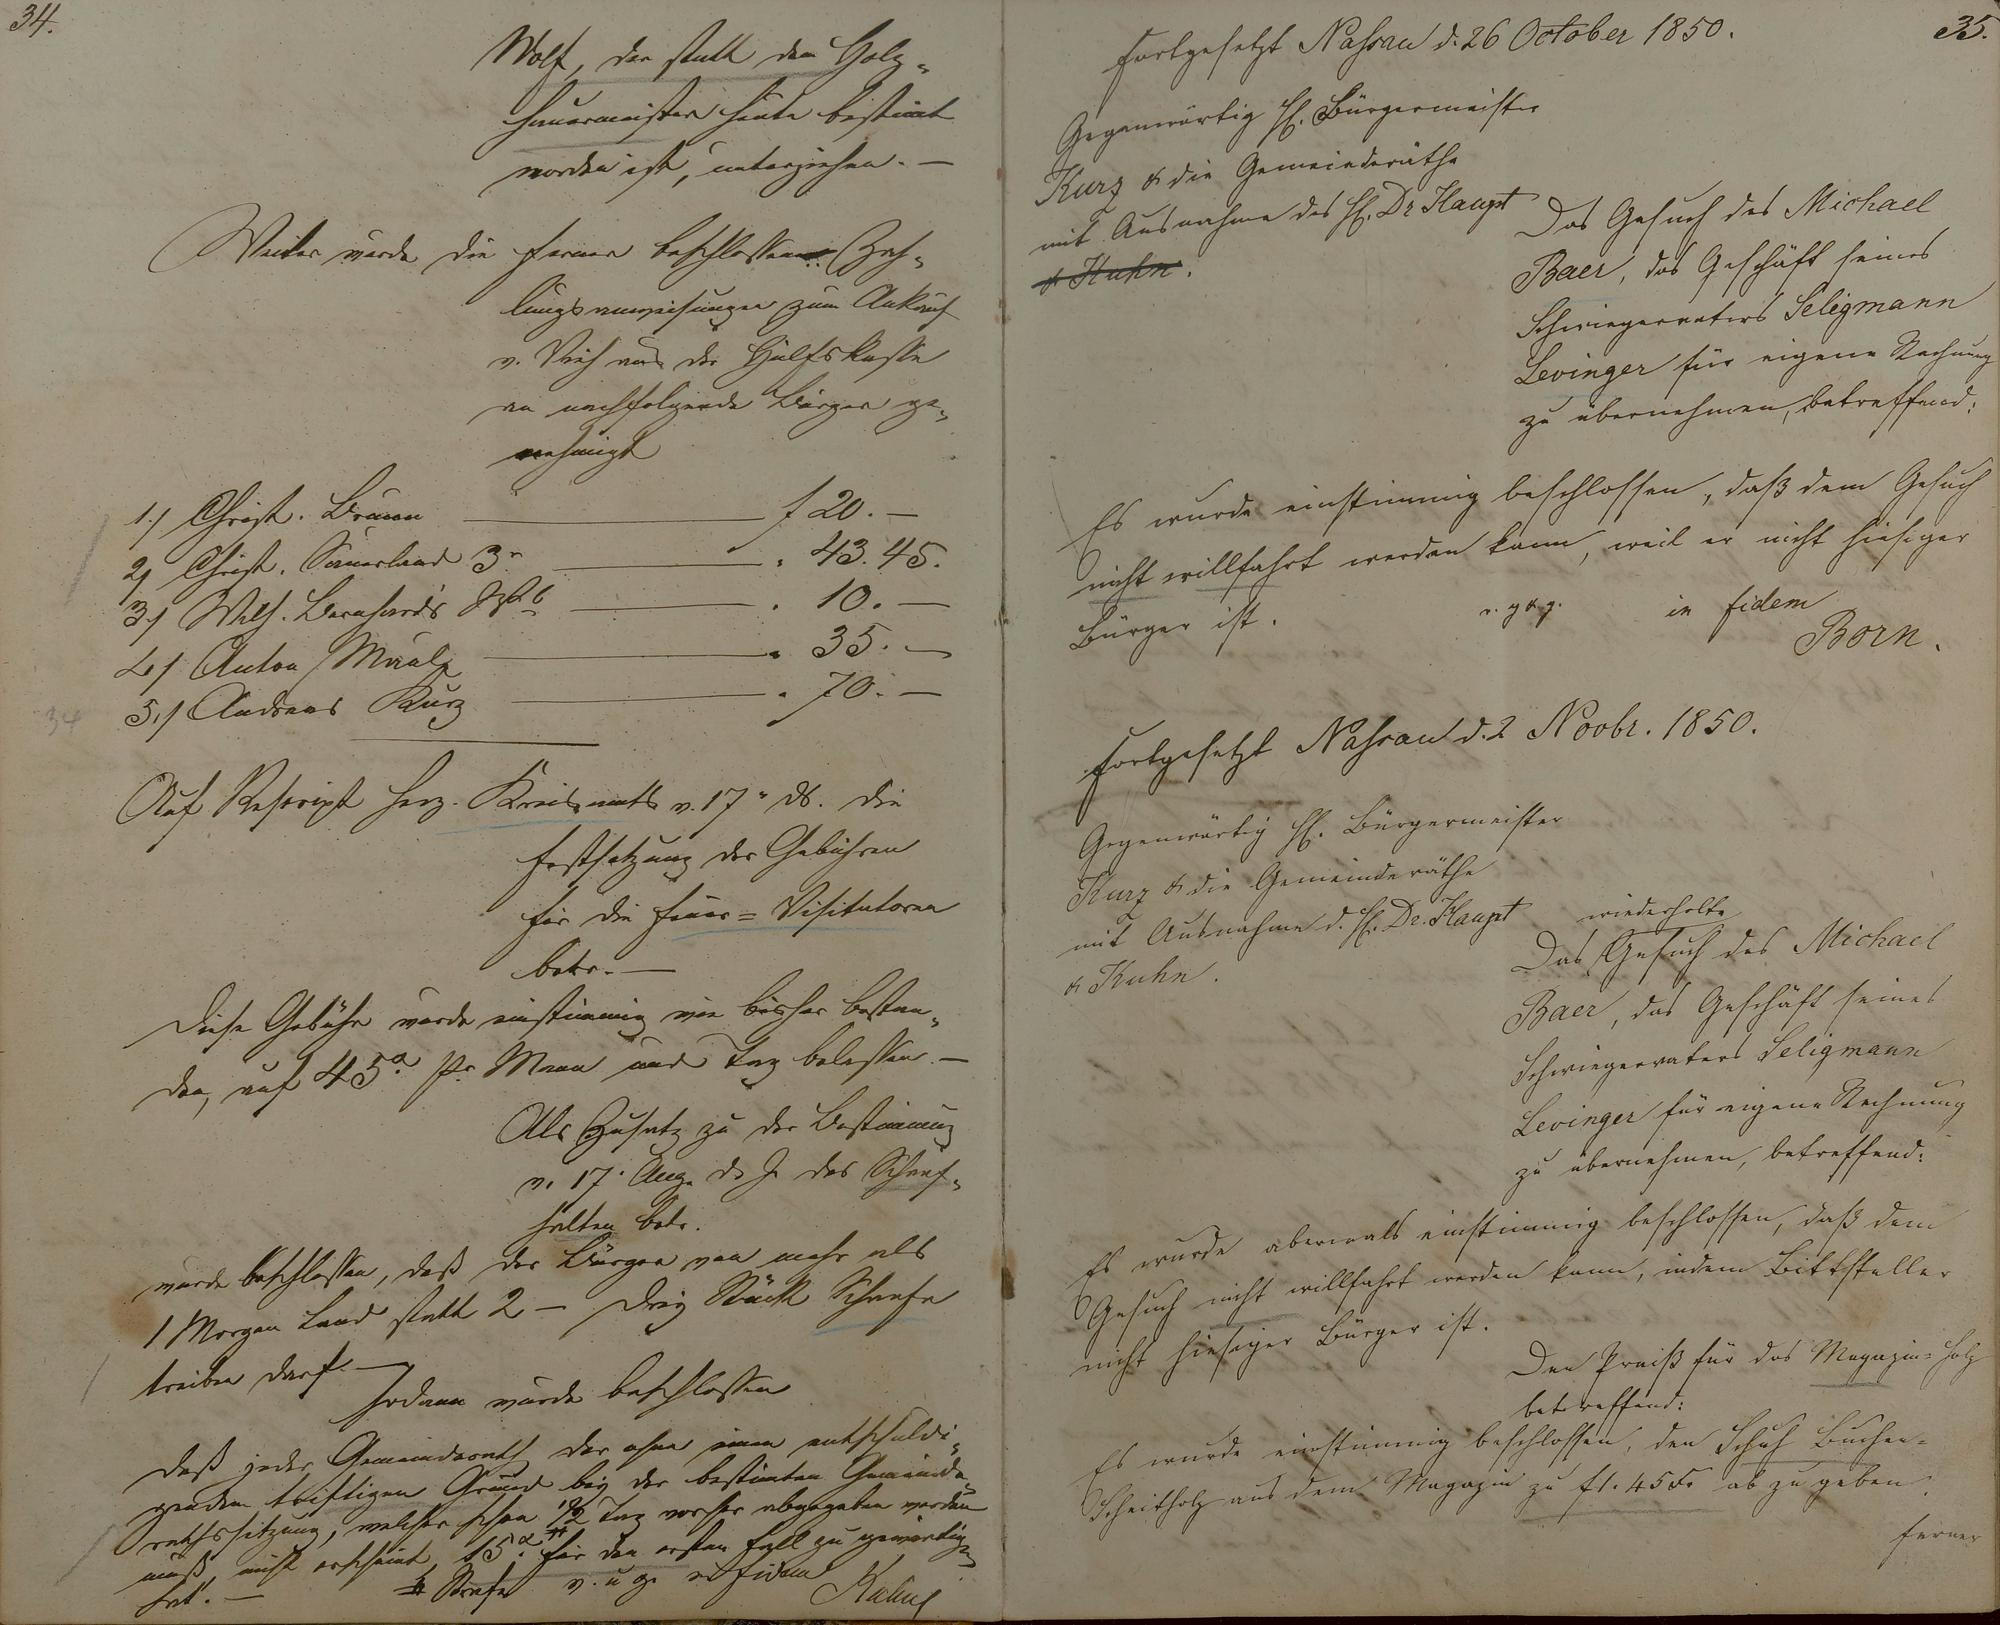 34.
Wolf, der statt dem Holz-
hauermeister heute bestimt
worden ist, unterziehen. —
Weiter wurde die ferner beschlossene Zah-
lungsanweisungen zum Ankauf
v. Vieh aus der Hülfskasse
an nachfolgende Bürger ge-
nehmigt
1.) Christ. Braun — f 20. —
2) Christ. Sauerland 3r — " 43. 45.
3.) Wilh. Bernhard's — " 10. —
4.) Anton Maul — " 35. —
5.) Andreas Kurz — " 70. —
34
Auf Rescript herz. Kreisamts v. 17" ds. die
Festsetzung der Gebühren
für die Feuer=Visitatoren
betr. —
Diese Gebühr wurde einstimmig wie bisher bestan-
den, auf 45 pr Mann und Tag belassen. —
Als Zusatz zu der Bestimmung
v. 17. Aug. d. J. das Schaaf-
halten betr.
wurde beschlossen, daß der Bürger von mehr als
1 Morgen Land statt 2 — drey Stück Schaafe
treiben darf. —
Sodann wurde beschlossen
daß jeder Gemeinderath der ohne einen entschuldi-
genden triftigen Grund bey der bestimten Gemeinde-
rathssitzung, welcher schon 1/2 Tag vorher abgegeben werden
muß, nicht erscheint, 15 für den ersten Fall zu gewärtigen
hat. — Strafe v. u. g. in fidem
35.
Fortgesetzt Nassau d. 26 October 1850.
Gegenwärtig H. Bürgermeister
Kurz & die Gemeinderäthe
mit Ausnahme des H. Dr Haupt
& Kuhn.
Das Gesuch des Michael
Baer, das Geschäft seines
Schwiegervaters Seligmann
Levinger für eigene Rechnung
zu übernehmen, betreffend:
Es wurde einstimmig beschlossen, daß dem Gesuch
nicht willfahrt werden kann, weil er nicht hiesiger
Bürger ist.
v. g & g. in fidem
Born.
Fortgesetzt Nassau d. 2 Novbr. 1850.
Gegenwärtig H. Bürgermeister
Kurz & die Gemeinderäthe
mit Ausnahme d. H. Dr. Haupt
& Kuhn.
wiederholte
Das Gesuch des Michael
Baer, das Geschäft seines
Schwiegervaters Seligmann
Levinger für eigene Rechnung
zu übernehmen, betreffend:
Es wurde abermals einstimmig beschlossen, daß dem
Gesuch nicht willfahrt werden kann, indem Bittsteller
nicht hiesiger Bürger ist.
Den Preiß für das Magazin=Holz
betreffend:
Es wurde einstimmig beschlossen, den Schuh Buchen-
Scheitholz aus dem Magazin zu f 1. 45 Kr abzugeben.
ferner